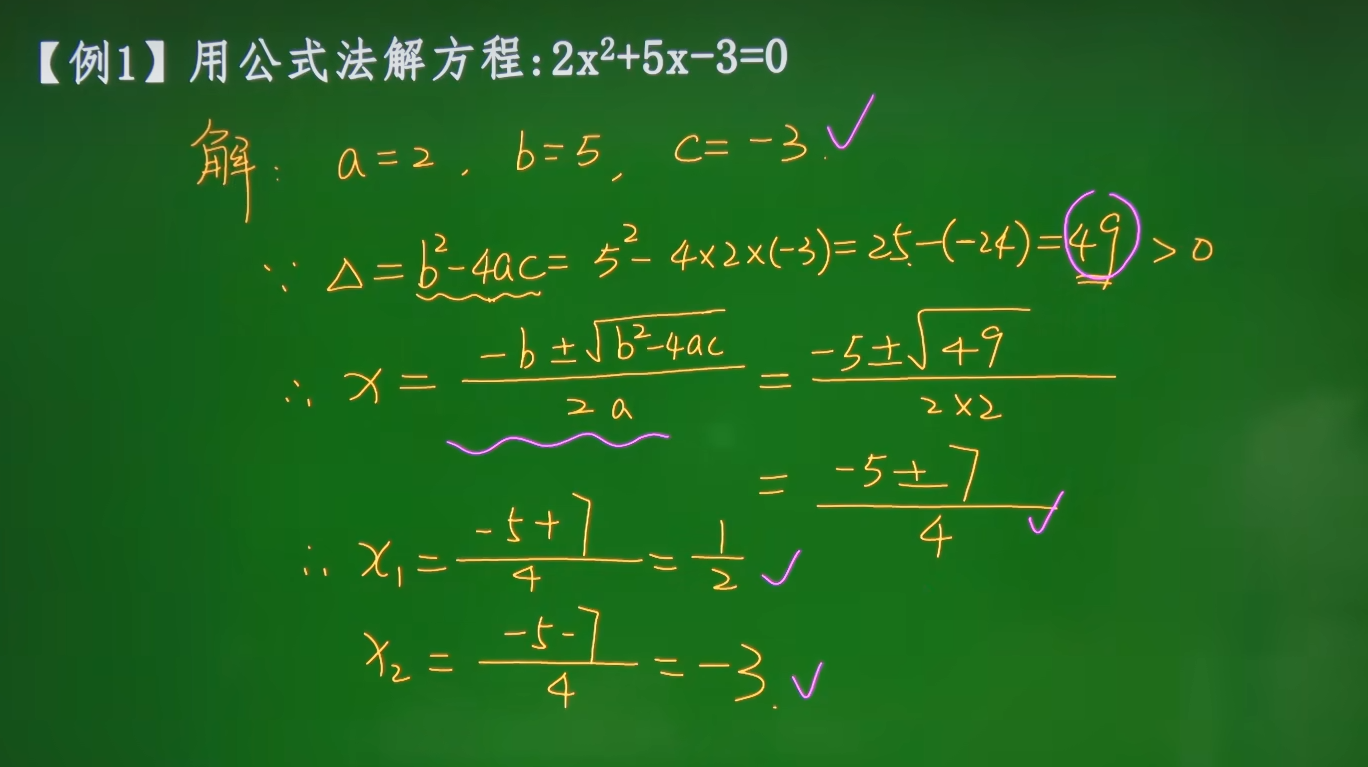 【例1】用公式法解方程:2x²+5x-3=0
解: a=2, b=5, c=-3.
∵ △=b²-4ac=5²-4×2×(-3)=25-(-24)=49>0
∴ x=(-b±√(b²-4ac))/(2a)=(-5±√49)/(2×2)
=(-5±7)/4
∴ x₁=(-5+7)/4=1/2
x₂=(-5-7)/4=-3.